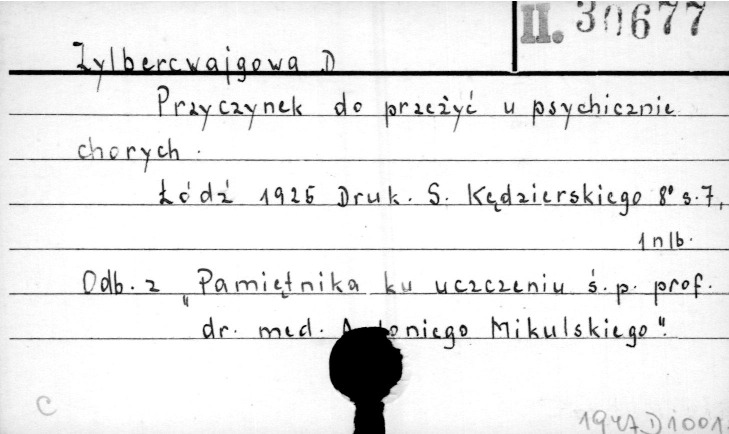 II. 30677
Zylbercwajgowa D
Przyczynek do przeżyć u psychicznie
chorych.
Łódź 1925 Druk. S. Kędzierskiego 8° s. 7,
1 nlb.
Odb. z „Pamiętnika ku uczczeniu ś.p. prof.
dr. med. Antoniego Mikulskiego".
C